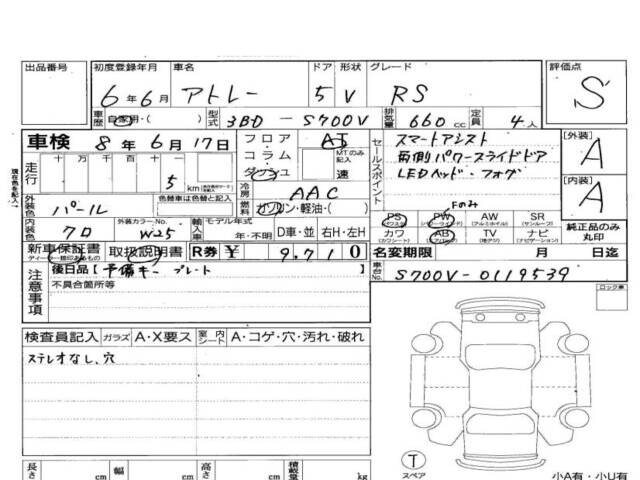 出品番号 初度登録年月 車名 ドア 形状 グレード 評価点
6年6月 アトレー 5 V RS S
車歴 自家用・( ) 型式 3BD-S700V 排気量 660 cc 定員 4人
車検 8年6月17日 フロア AT スマートアシスト 【外装】
コラム MTのみ記入 両側パワースライドドア A
走行 十 万 千 百 十 5 km ダッシュ 速 セールスポイント LEDヘッド・フォグ 【内装】
冷房 AAC A
色替車は色替と記入 燃料 ガソリン・軽油・( )
外装色 パール 外装カラーNo. W25 輸入車 モデル年式 PS PW AW SR 純正品のみ丸印
(パワステ) (アルミホイル) (サンルーフ)
内装色 クロ 年・不明 D車・並 右H・左H カワ AB TV ナビ
(カワシート) (エアバック) (地デジ) (ナビゲーション)
新車保証書 取扱説明書 R券 ¥ 9,710 名変期限 月 日迄
後日品【予備キー プレート 車台No. S700V-0119539
注意事項 不具合箇所等
ロック車
検査員記入 ガラス A・X要ス 室内シート A・コゲ・穴・汚れ・破れ
ステレオなし、穴
T
スペア
長さ cm 幅 cm 高さ cm 積載量 kg 小A有・小U有
現在色を記入→